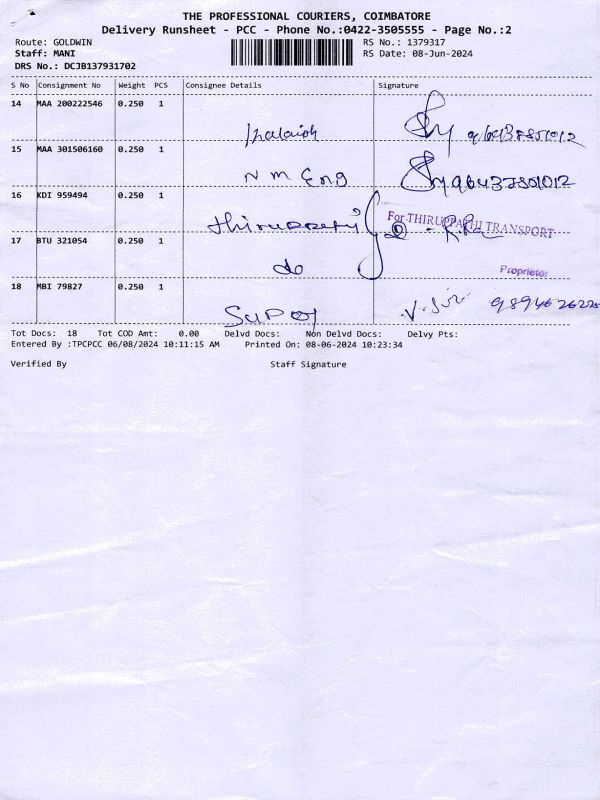 THE PROFESSIONAL COURIERS, COIMBATORE
Delivery Runsheet - PCC - Phone No.:0422-3505555 - Page No.:2
Route: GOLDWIN RS No.: 1379317
Staff: MANI RS Date: 08-Jun-2024
DRS No.: DCJB137931702
S No Consignment No Weight PCS Consignee Details Signature
14 MAA 200222546 0.250 1
15 MAA 301506160 0.250 1 N M Eng
16 KDI 959494 0.250 1
For THIRUPPATHI TRANSPORT
17 BTU 321054 0.250 1 do
Proprietor
18 MBI 79827 0.250 1
Tot Docs: 18 Tot COD Amt: 0.00 Delvd Docs: Non Delvd Docs: Delvy Pts:
Entered By :TPCPCC 06/08/2024 10:11:15 AM Printed On: 08-06-2024 10:23:34
Verified By Staff Signature